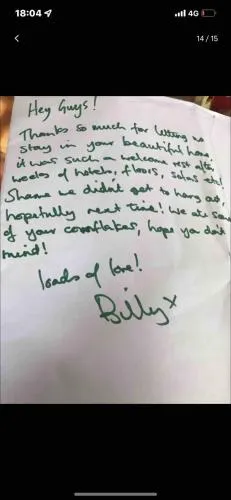 18:04
4G
14/15
Hey Guys!
Thanks so much for letting us
stay in your beautiful home
it was such a welcome rest after
weeks of hotels, floors, sofas etc!
Shame we didnt get to hang out,
hopefully next time! We ate some
of your cornflakes, hope you dont
mind!
loads of love!
Billy x